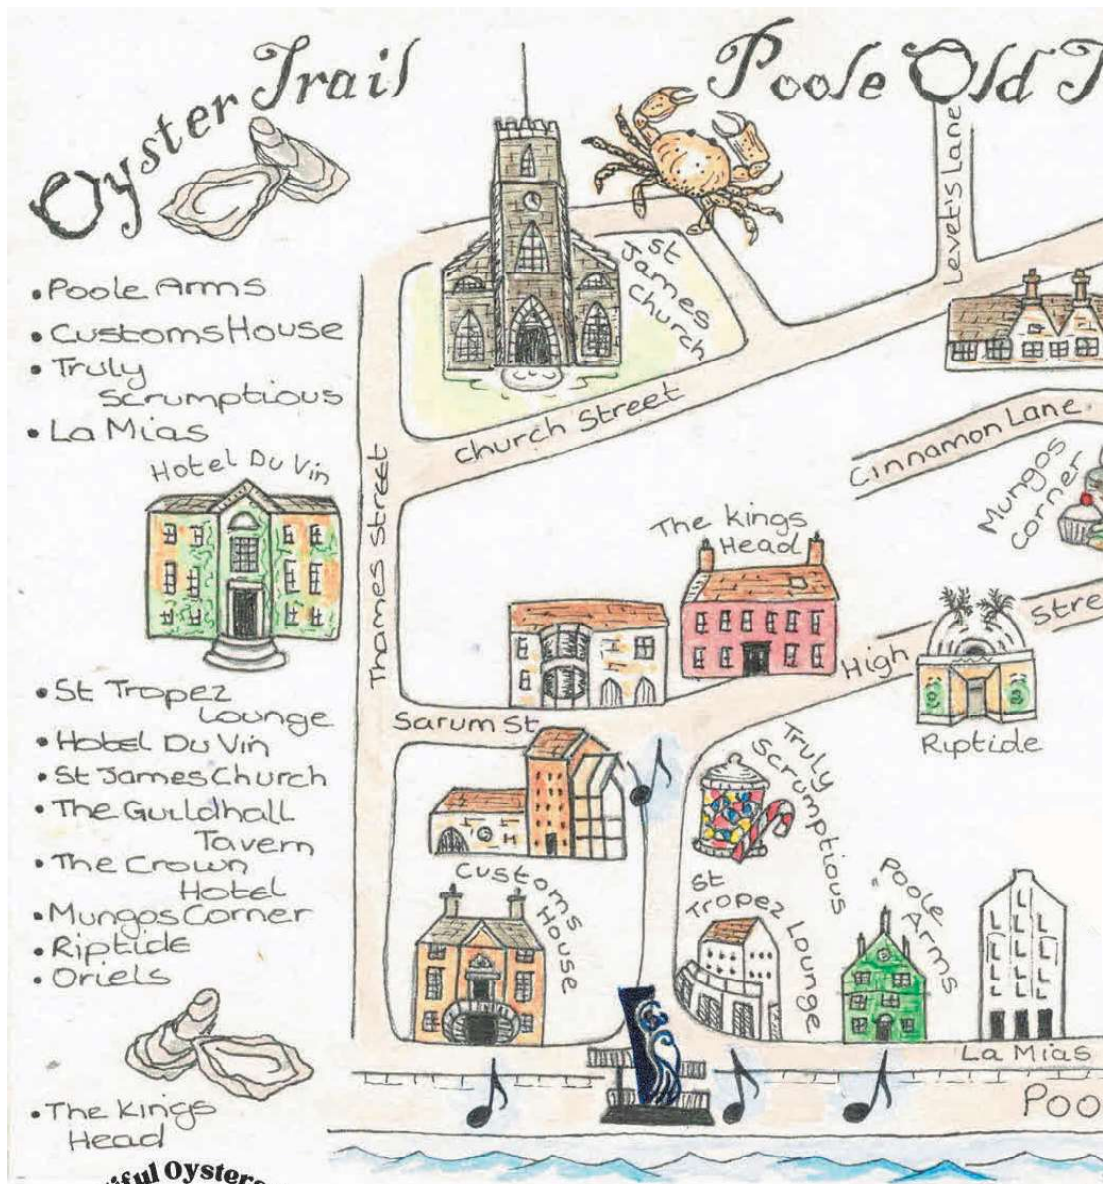 Oyster Trail
Poole Old T
• Poole Arms
• Customs House
• Truly
Scrumptious
• La Mias
Hotel Du Vin
• St Tropez
Lounge
• Hotel Du Vin
• St James Church
• The Guildhall
Tavern
• The Crown
Hotel
• Mungos Corner
• Riptide
• Oriels
• The Kings
Head
iful Oysters
St
James
Church
Levet's Lane
Church Street
Cinnamon Lane
Mungos
Corner
Thames Street
The Kings
Head
High Stre
Sarum St
Riptide
Truly
Scrumptious
Customs
House
St
Tropez Lounge
Poole
Arms
La Mias
Poo